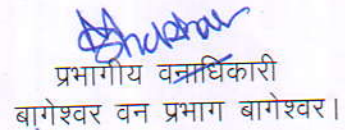 प्रभागीय वनाधिकारी
बागेश्वर वन प्रभाग बागेश्वर।